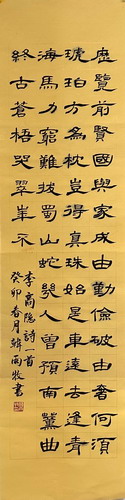 歷覽前賢國與家成由勤儉破由奢何須
琥珀方為枕豈得真珠始是車運去逢青
海馬力窮難拔蜀山蛇幾人曾預南薰曲
終古蒼梧哭翠華不
李商隱詩一首
癸卯春月韓雨牧書